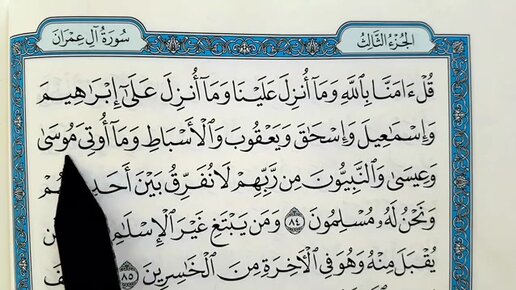 الجُزْءُ الثَّالِثُ
سُورَةُ آلِ عِمْرَانَ
قُلْ ءَامَنَّا بِٱللَّهِ وَمَآ أُنزِلَ عَلَيْنَا وَمَآ أُنزِلَ عَلَىٰٓ إِبْرَٰهِيمَ
وَإِسْمَٰعِيلَ وَإِسْحَٰقَ وَيَعْقُوبَ وَٱلْأَسْبَاطِ وَمَآ أُوتِىَ مُوسَىٰ
وَعِيسَىٰ وَٱلنَّبِيُّونَ مِن رَّبِّهِمْ لَا نُفَرِّقُ بَيْنَ أَحَدٍ
وَنَحْنُ لَهُۥ مُسْلِمُونَ ٨٤ وَمَن يَبْتَغِ غَيْرَ ٱلْإِسْلَٰمِ
يُقْبَلَ مِنْهُ وَهُوَ فِى ٱلْأَخِرَةِ مِنَ ٱلْخَٰسِرِينَ ٨٥